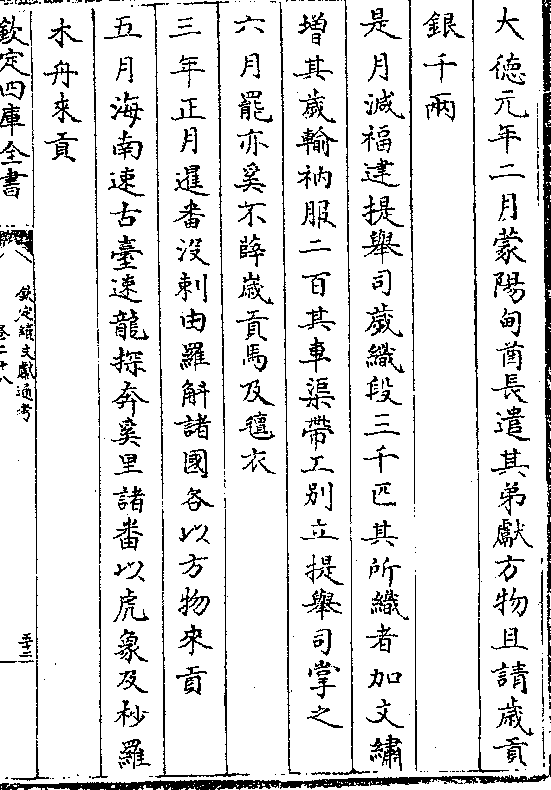 大德元年二月蒙陽甸酋長遣其弟獻方物且請歲貢
銀千兩
是月減福建提舉司歲織段三千匹其所織者加文繡
增其歲輸衲服二百其車渠帶工別立提舉司掌之
六月罷亦奚不薛歲貢馬及氊衣
三年正月暹番沒剌由羅斛諸國各以方物來貢
五月海南速古臺速龍探奔奚里諸番以虎象及桫羅
木舟來貢
欽定四庫全書
欽定續文獻通考
卷二十八